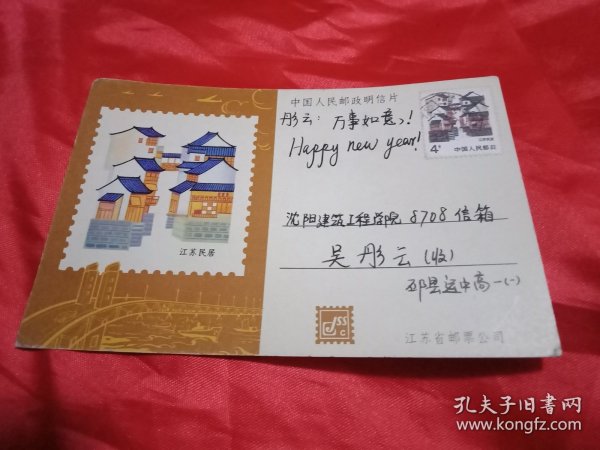 中国人民邮政明信片
彤云：万事如意！
Happy new year!
4分
中国人民邮政
沈阳建筑工程学院8708信箱
吴彤云(收)
邳县运中高一(一)
江苏民居
JSSC
江苏省邮票公司
孔夫子旧书网
www.kongfz.com